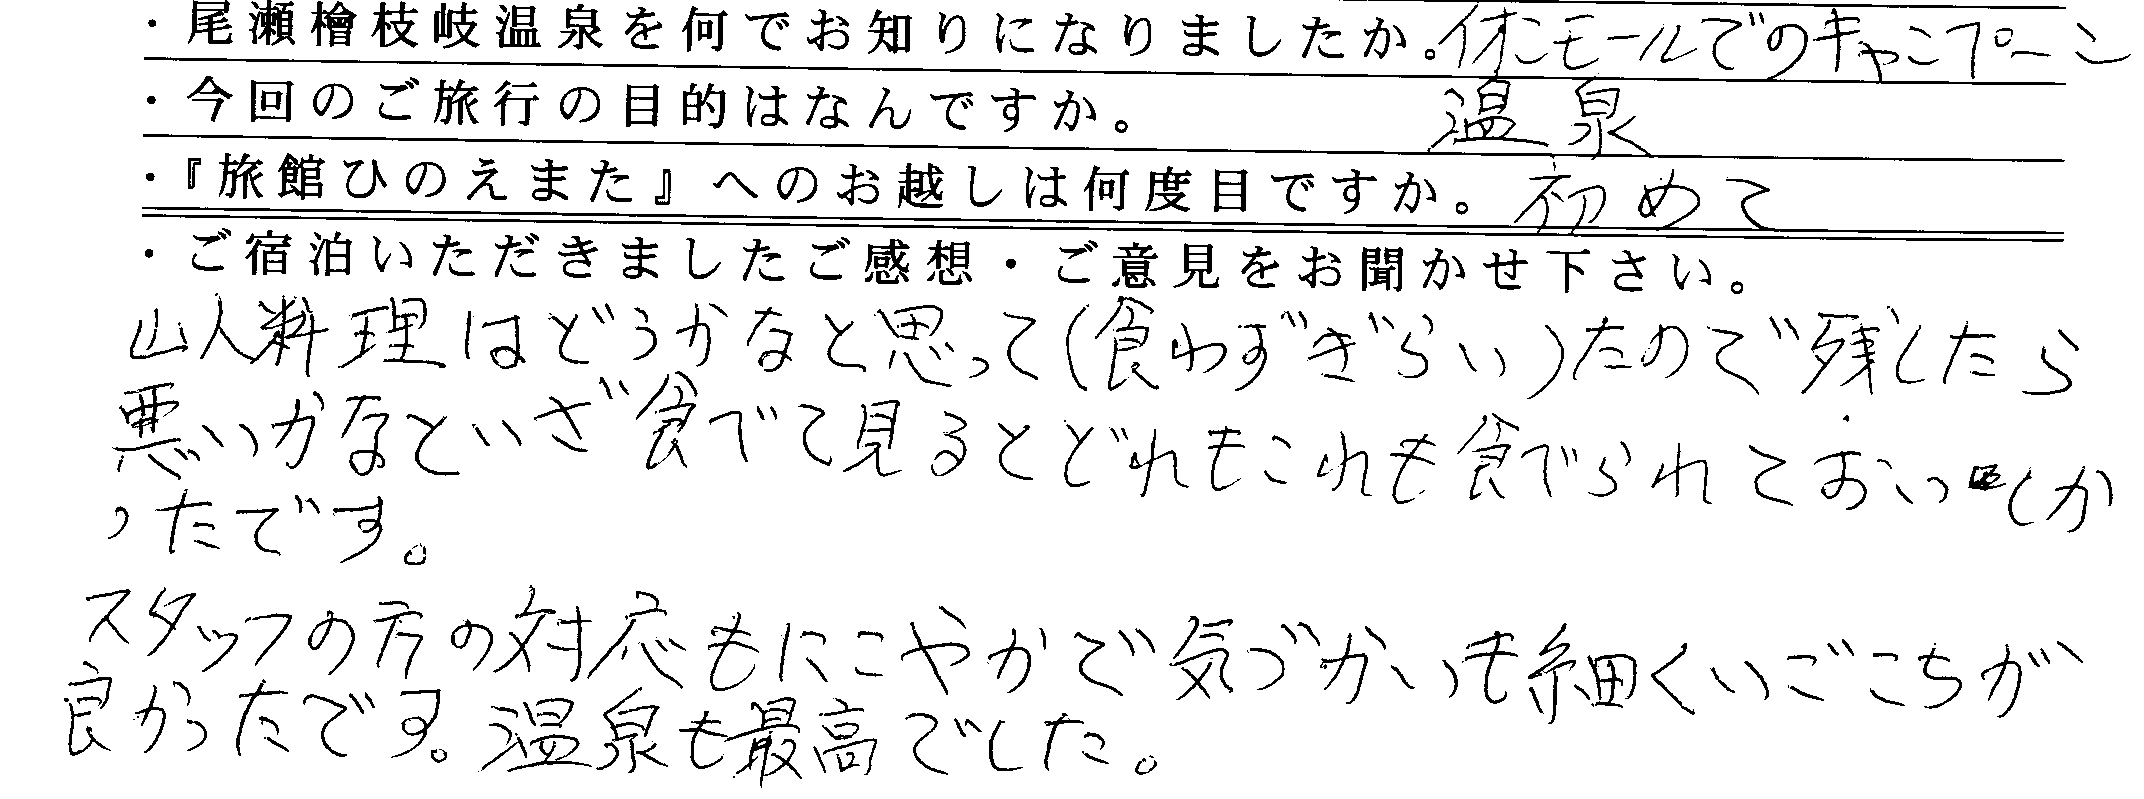 ・尾瀬檜枝岐温泉を何でお知りになりましたか。イオンモールでのキャンペーン
・今回のご旅行の目的はなんですか。 温泉
・『旅館ひのえまた』へのお越しは何度目ですか。 初めて
・ご宿泊いただきましたご感想・ご意見をお聞かせ下さい。
山人料理はどうかなと思って(食わずぎらい)たので残したら
悪いかなといざ食べて見るとどれもこれも食べられておいしか
ったです。
スタッフの方の対応もにこやかで気づかいも細くいごこちが
良かったです。温泉も最高でした。